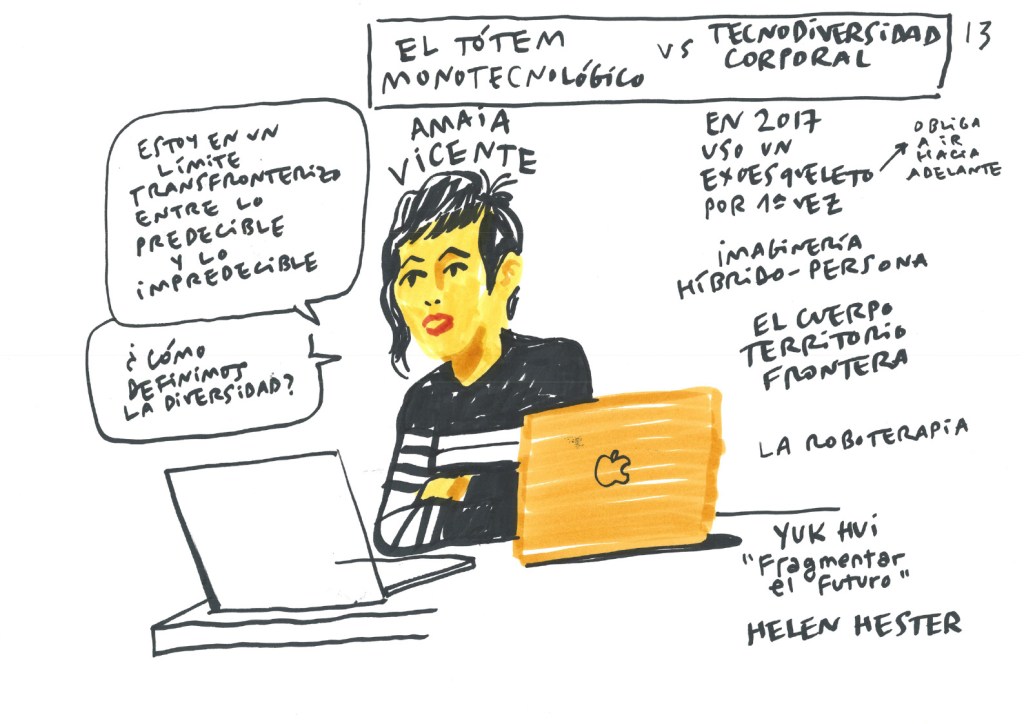 EL TÓTEM
MONOTECNOLÓGICO
VS
TECNODIVERSIDAD
CORPORAL
13
AMAIA
VICENTE
ESTOY EN UN
LÍMITE
TRANSFRONTERIZO
ENTRE LO
PREDECIBLE
Y LO
IMPREDECIBLE
¿CÓMO
DEFINIMOS
LA DIVERSIDAD?
EN 2017
USO UN
EXOESQUELETO
POR 1ª VEZ
OBLIGA
A IR
HACIA
ADELANTE
IMAGINERÍA
HÍBRIDO-PERSONA
EL CUERPO
TERRITORIO
FRONTERA
LA ROBOTERAPIA
YUK HUI
"Fragmentar
el Futuro"
HELEN HESTER